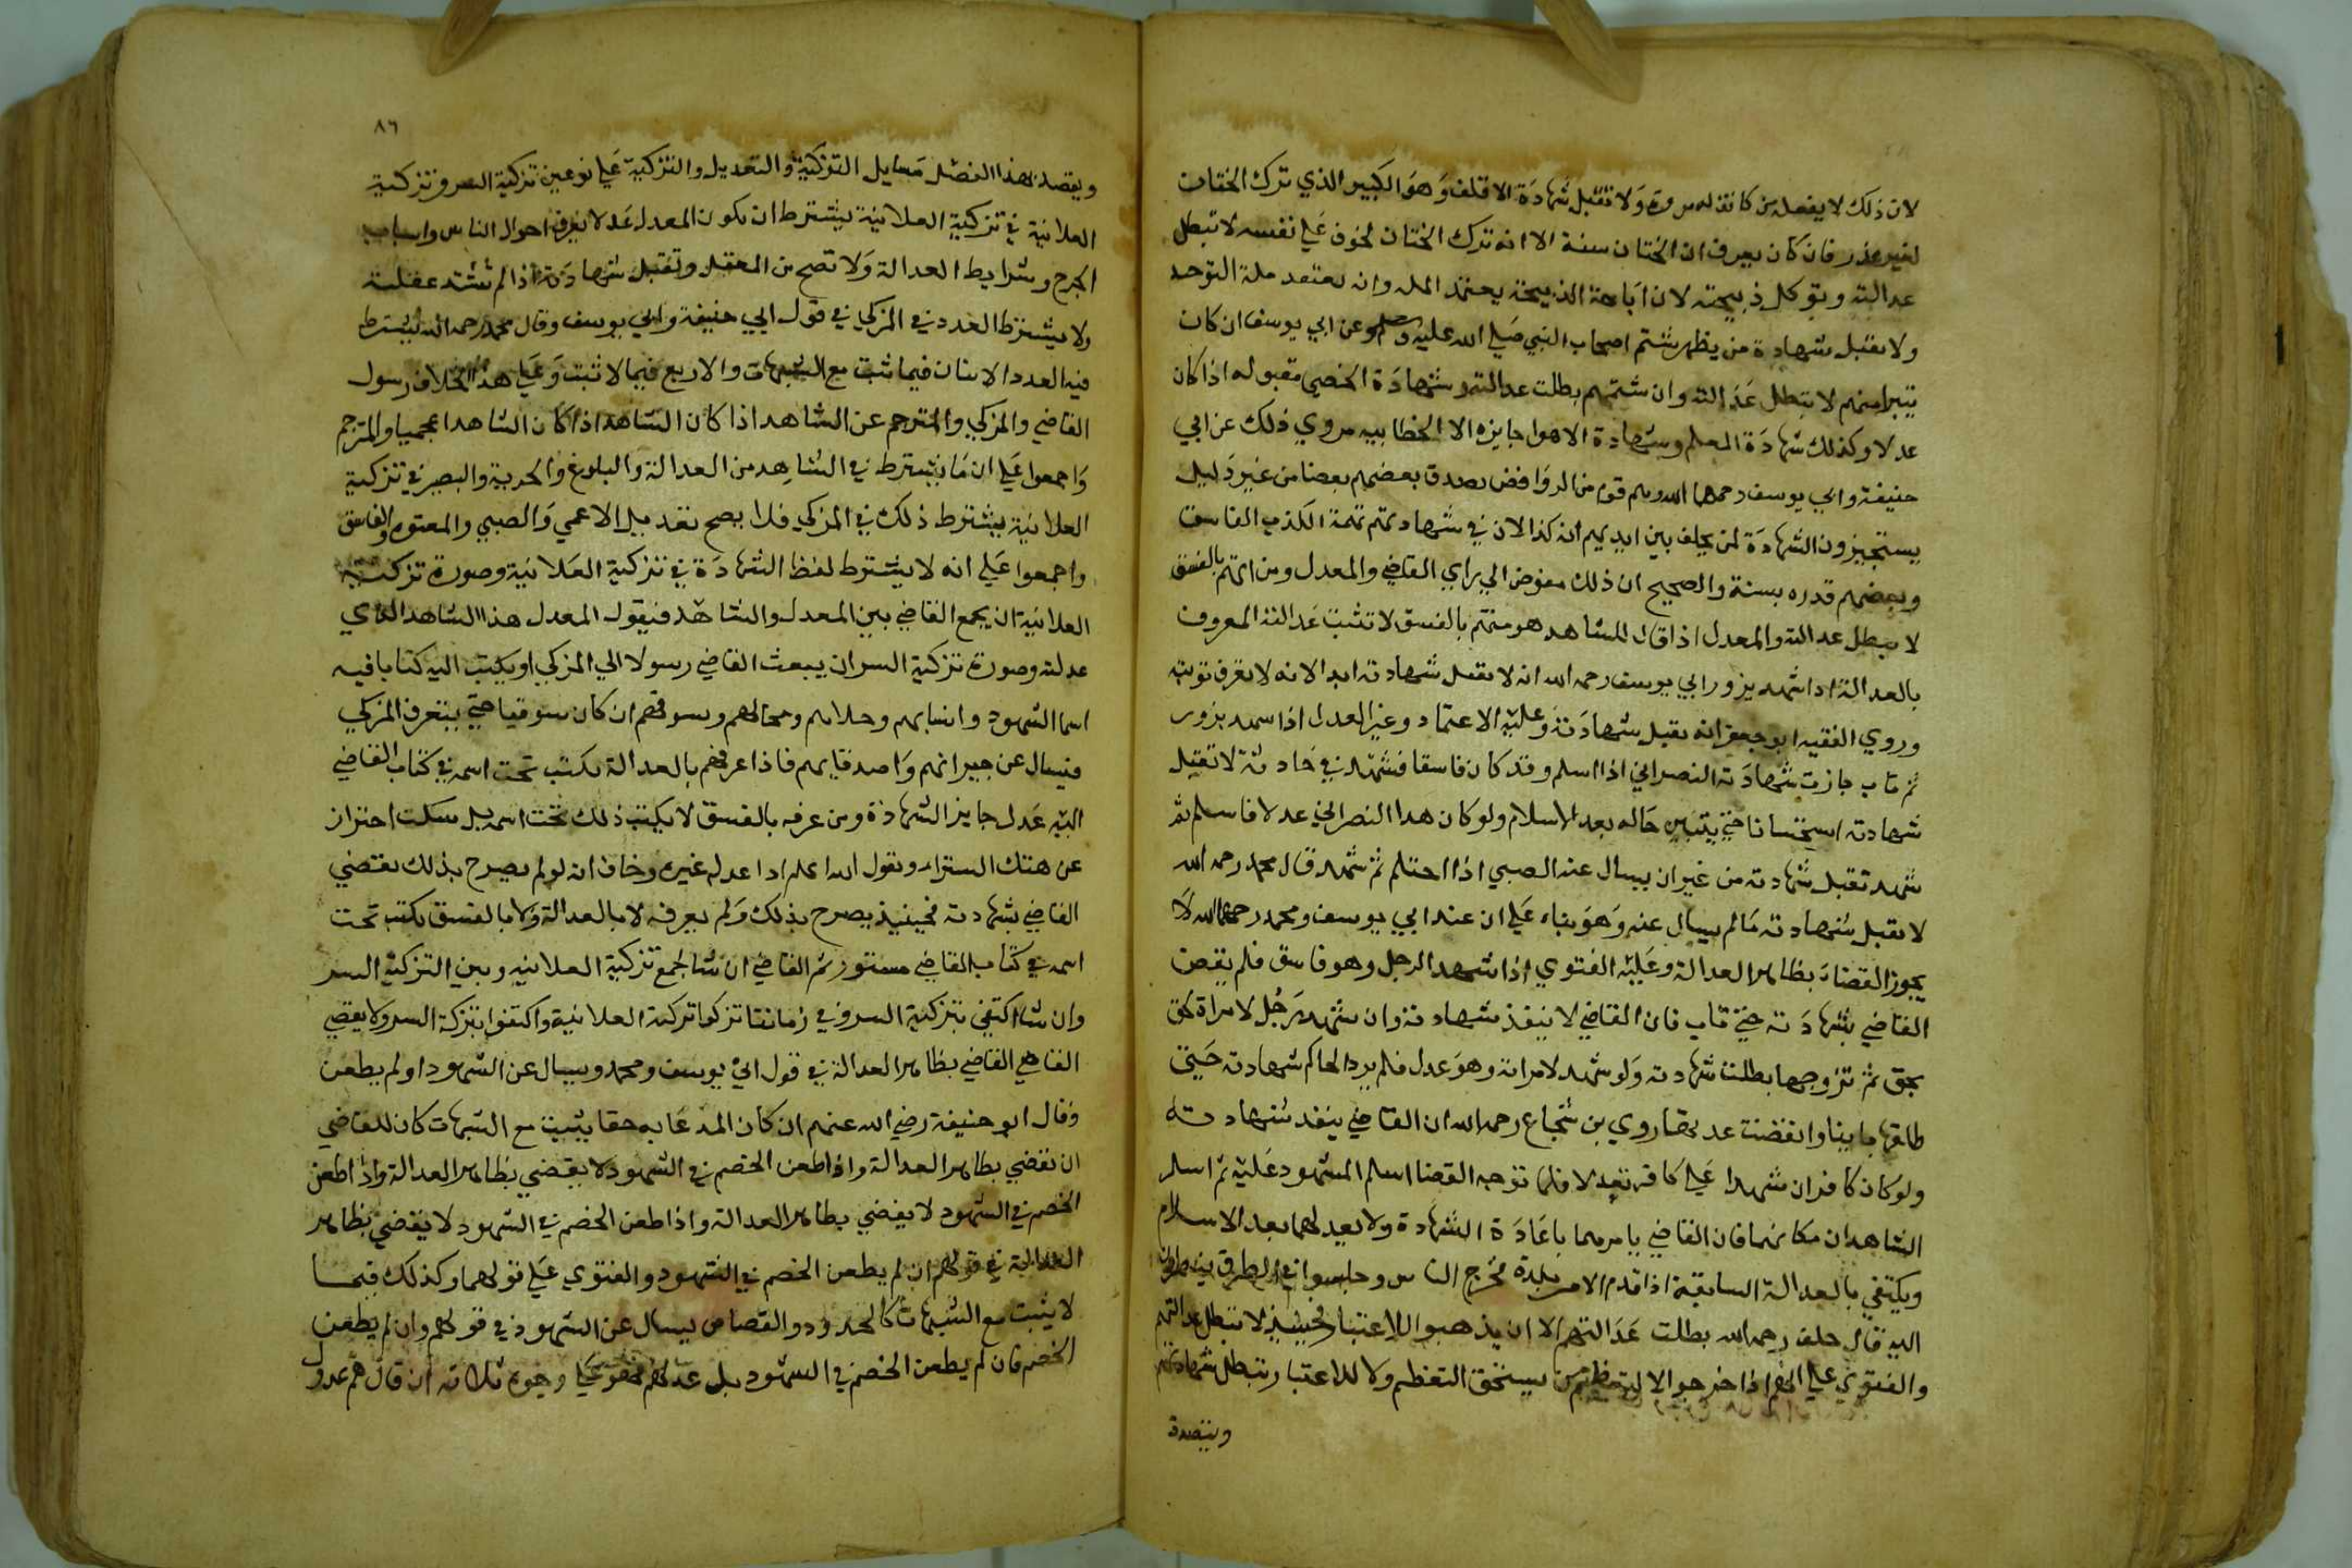 لان ذلك لا يفعله من كانت له مروة ولا تقبل شهادة الاقلف وهو الكبير الذي ترك الختان
لغير عذر فان كان يعرف ان الختان سنة الا انه ترك الختان لخوف علي نفسه لا تبطل
عدالته وتوكل ذبيحته لان اباحة الذبيحة يعتمد المله وان يعتقد ملة التوحيد
ولا يقبل شهادة من يظهر شتم اصحاب النبي صلي الله عليه وسلم وعن ابي يوسف ان كان
يتبرا منهم لا تبطل عدالته وان شتمهم بطلت عدالته وشهادة الخصي مقبوله اذا كان
عدلا وكذلك شهادة المعلم وشهادة الاهوا جايزه الا الخطابيه مروي ذلك عن ابي
حنيفة وابي يوسف رحمهما الله وهم قوم من الروافض يصدق بعضهم بعضا من غير دليل
يستجيزون الشهادة لمن يحلف بين ايديهم انه كذا لان في شهادتهم تهمة الكذب الفاسق
وبعضهم قدره بسنة والصحيح ان ذلك مفوض الي راي القاضي والمعدل ومن اتهم بالفسق
لا يبطل عدالته والمعدل اذا قال للشاهد هو متهم بالفسق لا تثبت عدالته المعروف
بالعدالة اذا شهد بزور ابي يوسف رحمه الله انه لا تقبل شهادته ابدا لانه لا يعرف توبته
وروي الفقيه ابو جعفر انه يقبل شهادته وعليه الاعتماد وغير العدل اذا شهد بزور
ثم تاب جازت شهادته النصراني اذا اسلم وقد كان فاسقا فشهد في حادثة لا تقبل
شهادته استحسانا حتي يتبين حاله بعد الاسلام ولو كان هذا النصراني عدلا فاسلم ثم
شهد تقبل شهادته من غير ان يسال عنه الصبي اذا احتلم ثم شهد قال محمد رحمه الله
لا تقبل شهادته ما لم يسال عنه وهو بناء علي ان عند ابي يوسف ومحمد رحمهما الله لا
يجوز القضاء بظاهر العدالة وعليه الفتوي اذا شهد الرجل وهو فاسق فلم يقض
القاضي بشهادته حتي تاب فان القاضي لا ينفذ شهادته وان شهد رجل لامراة بحق
بحق ثم تزوجها بطلت شهادته ولو شهد لامراته وهو عدل فلم يرد الحاكم شهادته حتي
طلقها باينا وانقضت عدتها روي بن شجاع رحمه الله ان القاضي ينفذ شهادته
ولو كان كافران شهدا علي كافر تعدلا فلما توجه القضا اسلم المشهود عليه ثم اسلم
الشاهدان مكانهما فان القاضي يامرهما باعادة الشهادة ولا يعدلهما بعد الاسلام
ويكتفي بالعدالة السابقة اذا قدم الامير بلدة فخرج الناس وجلسوا في الطرق ينظرون
اليه قال خلف رحمه الله بطلت عدالتهم الا ان يذهبوا للاعتبار فحينيذ لا تبطل عدالتهم
والفتوي علي انهم اذا خرجوا لا لتعظيم من يستحق التعظيم ولا للاعتبار تبطل شهادتهم
ويقصد
٨٦
ويقصد بهذا الفصل مسايل التزكية والتعديل والتزكية علي نوعين تزكية السر وتزكية
العلانية في تزكية العلانية يشترط ان يكون المعدل عدلا يعرف احوال الناس واسباب
الجرح وشرايط العدالة ولا تصح من المغفل وتقبل شهادته اذا لم تشتد غفلته
ولا يشترط العدد في المزكي في قول ابي حنيفة وابي يوسف وقال محمد رحمه الله يشترط
فيه العدد الاثنان فيما ثبت مع الشبهات والاربع فيما لا ثبت وعلي هذا الخلاف رسول
القاضي والمزكي والمترجم عن الشاهد اذا كان الشاهد اذا كان الشاهد اعجميا والمترجم
واجمعوا علي ان ما يشترط في الشاهد من العدالة والبلوغ والحرية والبصر في تزكية
العلانية يشترط ذلك في المزكي فلا يصح تعديل الاعمي والصبي والمعتوه والفاسق
واجمعوا علي انه لا يشترط لفظ الشهادة في تزكية العلانية وصورة تزكية
العلانية ان يجمع القاضي بين المعدل والشاهد فيقول المعدل هذا الشاهد الذي
عدلته وصورة تزكية السر ان يبعث القاضي رسولا الي المزكي او يكتب اليه كتابا فيه
اسما الشهود وانسابهم وحلاهم ومحالهم وسوقهم ان كان سوقيا حتي يتعرف المزكي
فيسال عن جيرانهم واصدقايهم فاذا عرفهم بالعدالة يكتب تحت اسمه في كتاب القاضي
اليه عدل جايز الشهادة ومن عرفه بالفسق لا يكتب ذلك تحت اسمه بل سكت احتراز
عن هتك الستر او يقول الله اعلم اذا عدله غيره وخاف انه لو لم يصرح بذلك يقضي
القاضي بشهادته فحينيذ يصرح بذلك ولم يعرفه لا بالعدالة ولا بالفسق يكتب تحت
اسمه في كتاب القاضي مستور ثم القاضي ان شا جمع تزكية العلانيه وبين التزكية السر
وان شا اكتفي بتزكية السر وفي زماننا تركوا تزكية العلانية واكتفوا بتزكية السر ولا يقضي
القاضي القاضي بظاهر العدالة في قول ابي يوسف ومحمد ويسال عن الشهود او لم يطعن
وقال ابو حنيفة رضي الله عنهم ان كان المدعا به حقا يثبت مع الشبهات كان للقاضي
ان يقضي بظاهر العدالة واذا طعن الخصم في الشهود لا يقضي بظاهر العدالة واذا طعن
الخصم في الشهود لا يقضي بظاهر العدالة واذا طعن الخصم في الشهود لا يقضي بظاهر
العدالة في قولهم ان لم يطعن الخصم في الشهود والفتوي علي قولهما وكذلك فيما
لا يثبت مع الشبهات كالحدود والقصاص يسال عن الشهود في قولهم وان لم يطعن
الخصم فان لم يطعن الخصم في الشهود بل عدلهم فهو علي وجوه ثلاثه ان قال هم عدول